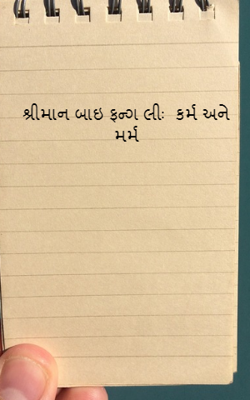 શ્રીમાન બાઇ ફન્ગ લીઃ કર્મ અને
મર્મ